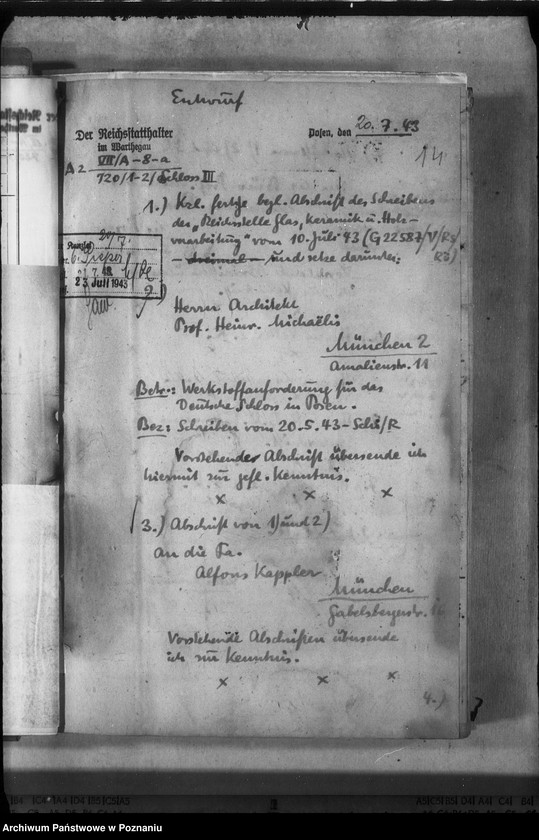 Entwurf
Der Reichsstatthalter
im Warthegau
Posen, den 20. 7. 43
14
VII/A-8-a
A 2
720/1-2/Schloss III
1.) Kzl. fertige begl. Abschrift des Schreibens
der „Reichsstelle Glas, Keramik u. Holz-
verarbeitung" vom 10. Juli 43 (G 22587/V/
- dreimal - und setze darunter:
20/7.
23. Juli 1943
Herrn Architekt
Prof. Heinr. Michaëlis
München 2
Amalienstr. 11
Betr.: Werkstoffanforderung für das
Deutsche Schloss in Posen.
Bez: Schreiben vom 20.5.43 - Schi/R
Vorstehende Abschrift übersende ich
hiermit zur gefl. Kenntnis.
x x x
3.) Abschrift von 1) und 2)
an die Fa.
Alfons Kappler
München
Gabelsbergerstr.
Vorstehende Abschriften übersende
ich zur Kenntnis.
x x x
4.)
Archiwum Państwowe w Poznaniu